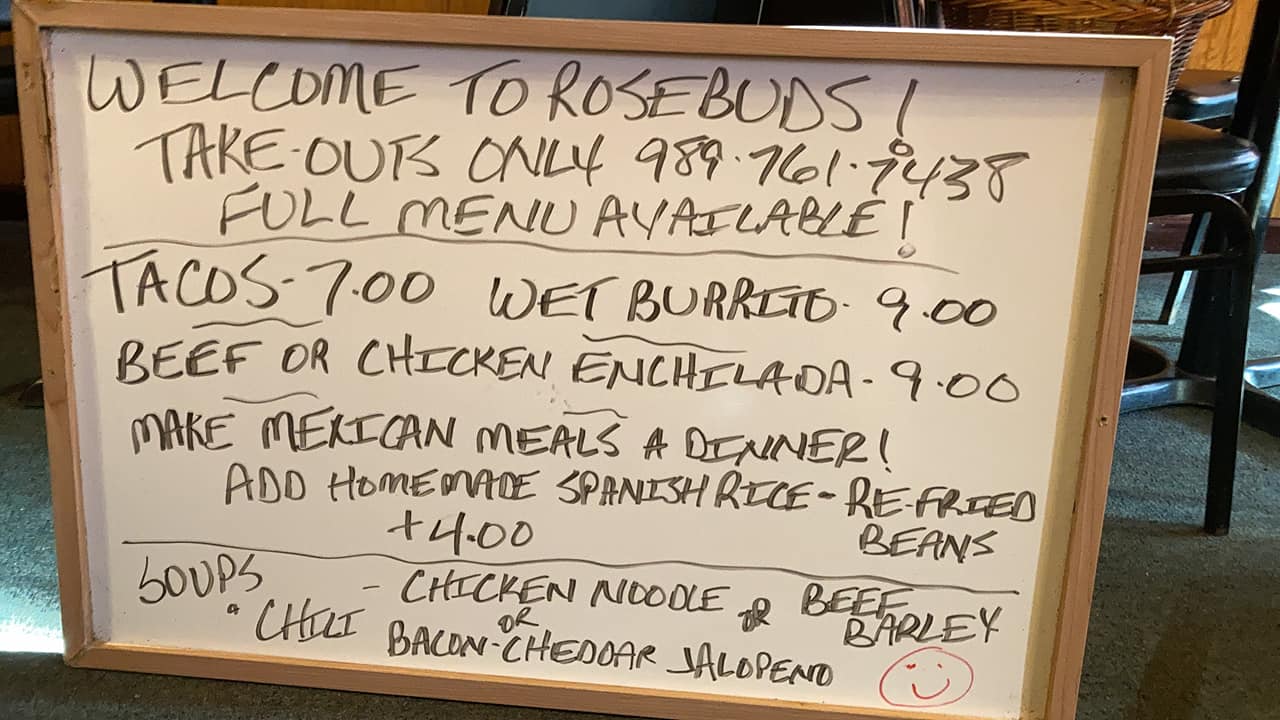 WELCOME TO ROSEBUDS!
TAKE-OUTS ONLY 989.761.7438
FULL MENU AVAILABLE!
TACOS - 7.00 WET BURRITO - 9.00
BEEF OR CHICKEN ENCHILADA - 9.00
MAKE MEXICAN MEALS A DINNER!
ADD HOMEMADE SPANISH RICE - RE-FRIED
+4.00 BEANS
SOUPS - CHICKEN NOODLE OR BEEF
BARLEY
• CHILI OR
BACON-CHEDDAR JALOPENO